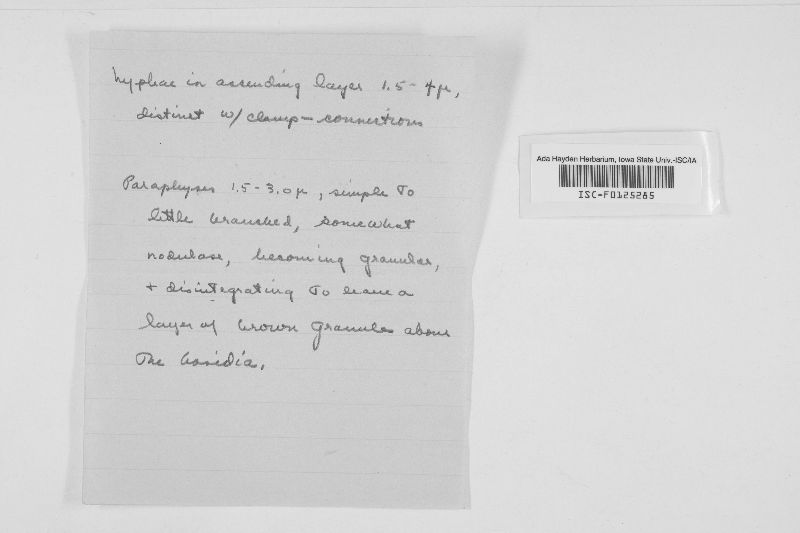 hyphae in ascending layer 1.5-4µ,
distinct w/ clamp-connections
Paraphyses 1.5-3.0µ, simple to
little branched, somewhat
nodulose, becoming granular,
+ disintegrating to leave a
layer of brown granules above
the basidia.
Ada Hayden Herbarium, Iowa State Univ.-ISC/IA
ISC-F0125285